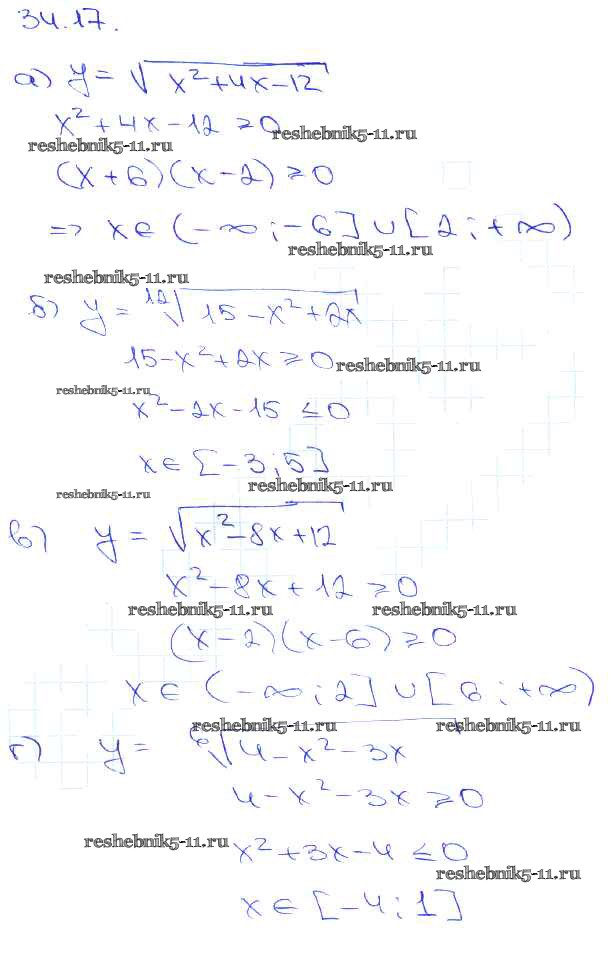 34.17.
а) y = √x²+4x-12
x²+4x-12 ≥ 0
reshebnik5-11.ru
reshebnik5-11.ru
(x+6)(x-2) ≥ 0
=> x∈(-∞;-6]∪[2;+∞)
reshebnik5-11.ru
reshebnik5-11.ru
б) y = ¹²√15-x²+2x
15-x²+2x ≥ 0
reshebnik5-11.ru
reshebnik5-11.ru
x²-2x-15 ≤ 0
x∈[-3;5]
reshebnik5-11.ru
reshebnik5-11.ru
в) y = √x²-8x+12
x²-8x+12 ≥ 0
reshebnik5-11.ru reshebnik5-11.ru
(x-2)(x-6) ≥ 0
x∈(-∞;2]∪[6;+∞)
reshebnik5-11.ru reshebnik5-11.ru
г) y = ⁶√4-x²-3x
4-x²-3x ≥ 0
reshebnik5-11.ru
x²+3x-4 ≤ 0
reshebnik5-11.ru
x∈[-4;1]